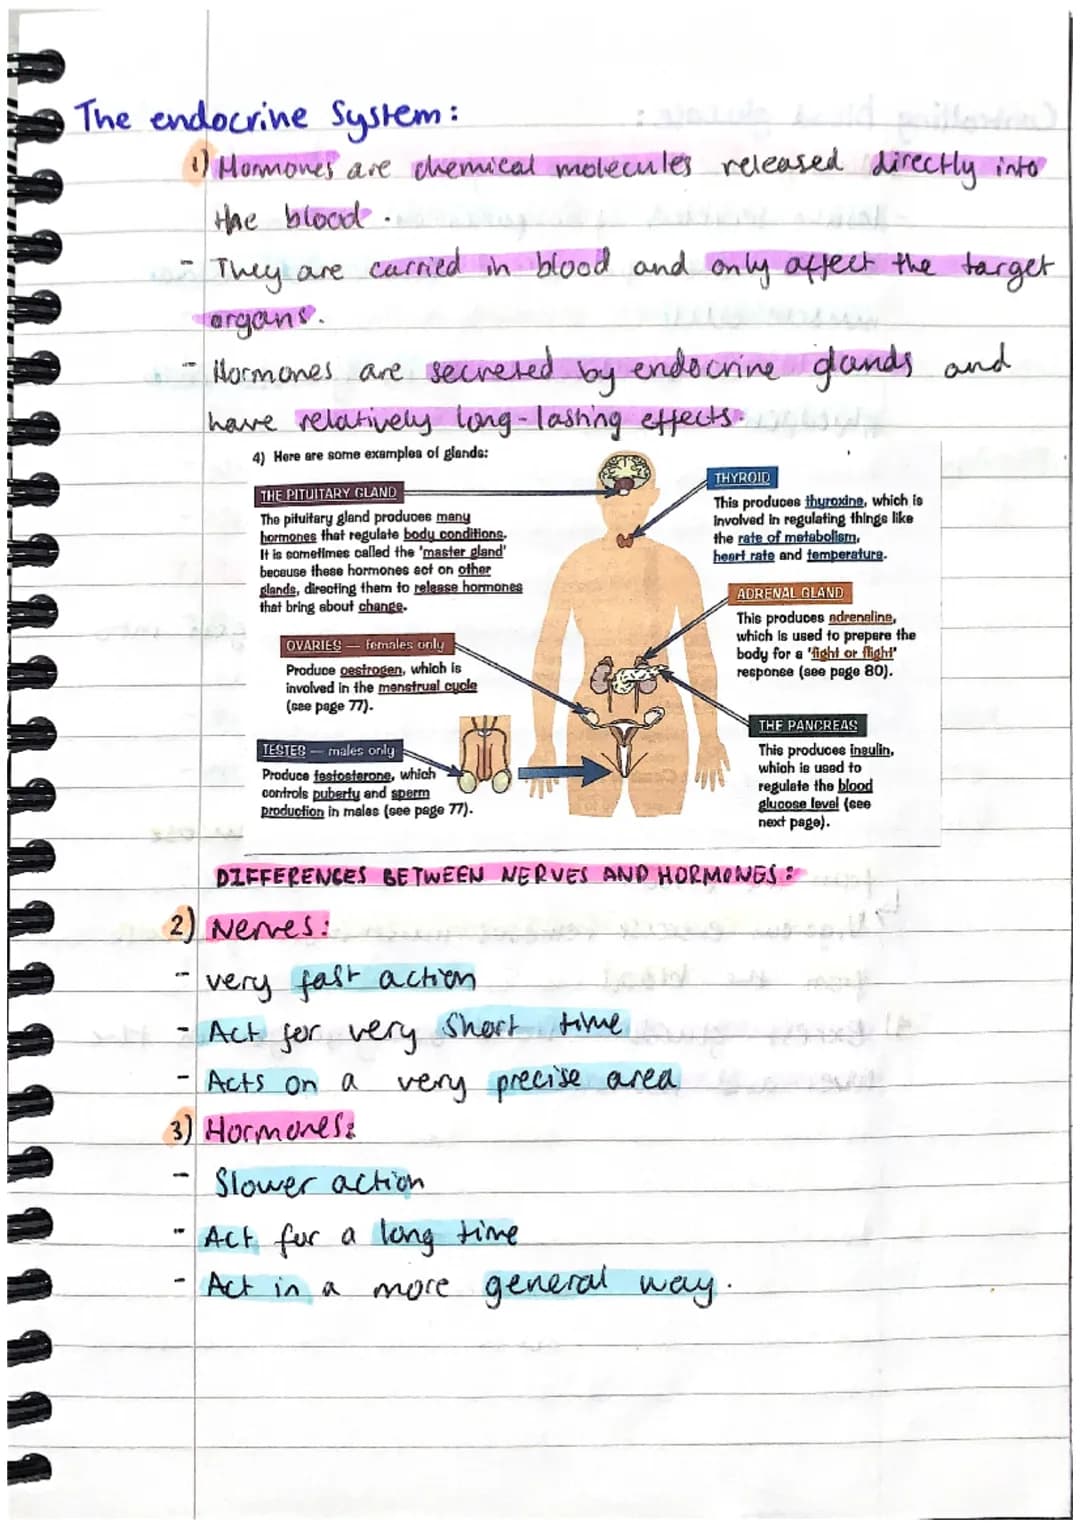 The endocrine System:
1) Hormones are chemical molecules released directly into
the blood.
- They are carried in blood and only affect the target
organs.
- Hormones are secreted by endocrine glands and
have relatively long-lasting effects.
4) Here are some examples of glands:
THE PITUITARY GLAND
The pituitary gland produces many
hormones that regulate body conditions.
It is sometimes called the 'master gland'
because these hormones act on other
glands, directing them to release hormones
that bring about change.
THYROID
This produces thyroxine, which is
involved in regulating things like
the rate of metabolism,
heart rate and temperature.
ADRENAL GLAND
This produces adrenaline,
which is used to prepare the
body for a 'fight or flight'
response (see page 80).
OVARIES — females only
Produce oestrogen, which is
involved in the menstrual cycle
(see page 77).
THE PANCREAS
This produces insulin,
which is used to
regulate the blood
glucose level (see
next page).
TESTES — males only
Produce testosterone, which
controls puberty and sperm
production in males (see page 77).
DIFFERENCES BETWEEN NERVES AND HORMONES:
2) Nerves:
- very fast action
- Act for very short time
- Acts on a very precise area
3) Hormones:
- Slower action
- Act for a long time
- Act in a more general way.